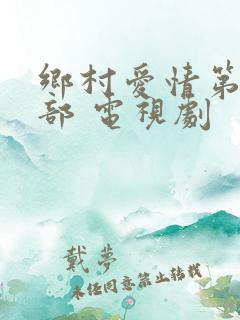 鄉村愛情第
部 電視劇
戴夢
未经同意禁止转载